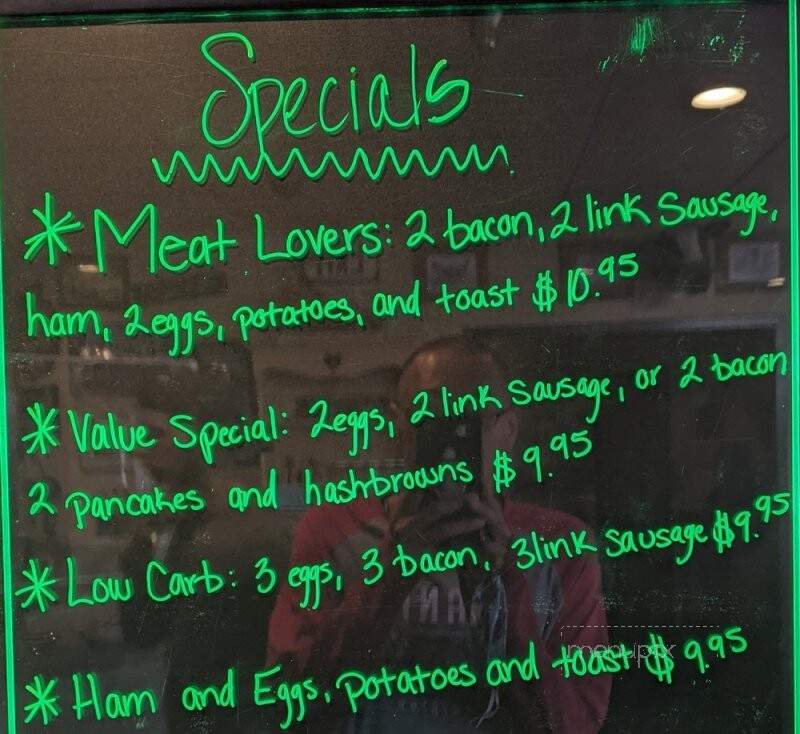 Specials
* Meat Lovers: 2 bacon, 2 link Sausage,
ham, 2eggs, potatoes, and toast $10.95
* Value Special: 2eggs, 2 link Sausage, or 2 bacon
2 pancakes and hashbrowns $9.95
* Low Carb: 3 eggs, 3 bacon, 3link sausage $9.95
* Ham and Eggs, potatoes and toast $9.95
menupix